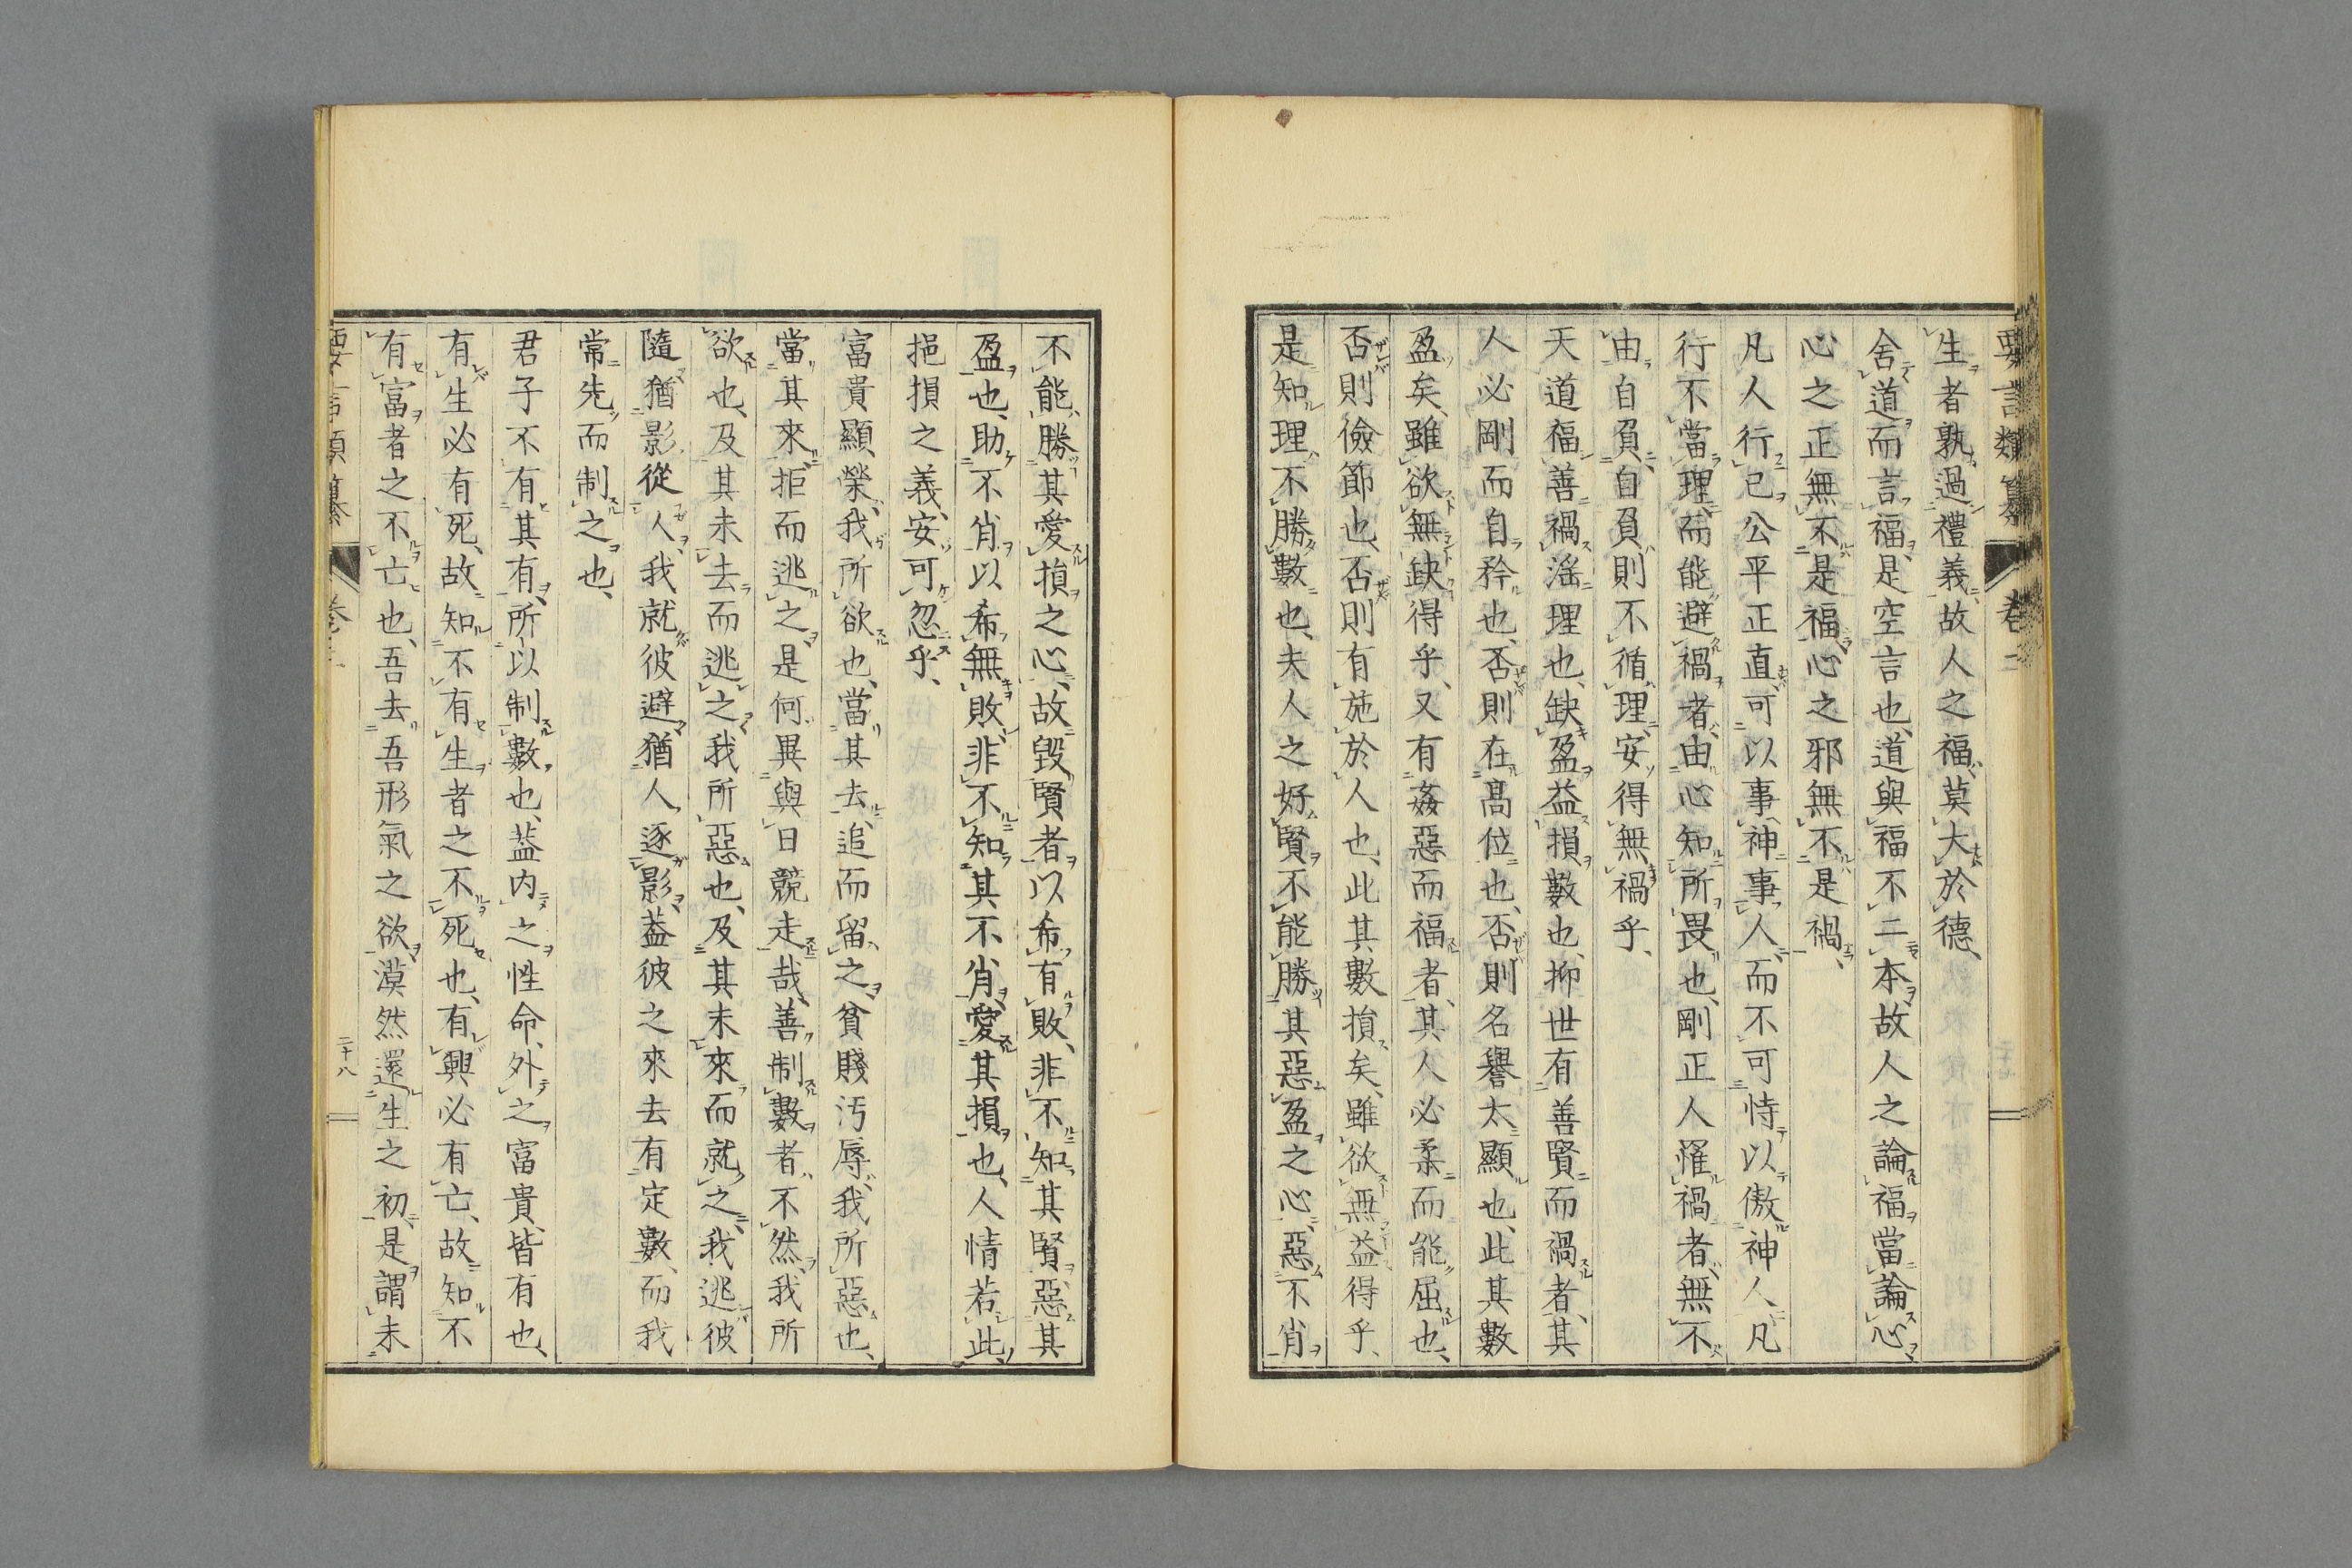 要言類纂 卷二
生者孰過禮義、故人之福、莫大於德、
舍道而言福、是空言也、道與福不二本、故人之論福、當論心
心之正無不是福、心之邪無不是禍、
凡人行已公平正直、可以事神事人、而不可恃以傲神人、凡
行不當理、而能避禍者、由心知所畏也、剛正人罹禍者、無不
由自負、自負則不循理、安得無禍乎、
天道福善禍淫理也、缺盈益損數也、抑世有善賢而禍者、其
人必剛而自矜也、否則在髙位也、否則名譽太顯也、此其數
盈矣、雖欲無缺得乎、又有姦惡而福者、其人必柔而能屈也、
否則儉節也、否則有施於人也、此其數損矣、雖欲無益得乎、
是知理不勝數也、夫人之好賢不能勝其惡盈之心、惡不肖
不能勝其愛損之心、故毀賢者以希有敗、非不知其賢、惡其
盈也、助不肖以希無敗、非不知其不肖、愛其損也、人情若此、
挹損之義、安可忽乎、
富貴顯榮、我所欲也、當其去、追而留之、貧賤汚辱、我所惡也、
當其來、拒而逃之、是何異與日競走哉、善制數者、不然、我所
欲也、及其未去而逃之、我所惡也、及其未來而就之、我逃彼
隨、猶影從人、我就彼避、猶人逐影、葢彼之來去有定數、而我
常先而制之也、
君子不有其有、所以制數也、葢内之性命、外之富貴、皆有也、
有生必有死、故知不有生者之不死也、有興必有亡、故知不
有富者之不亡也、吾去吾形氣之欲、漠然還生之初、是謂未
要言類纂 卷二 二十八